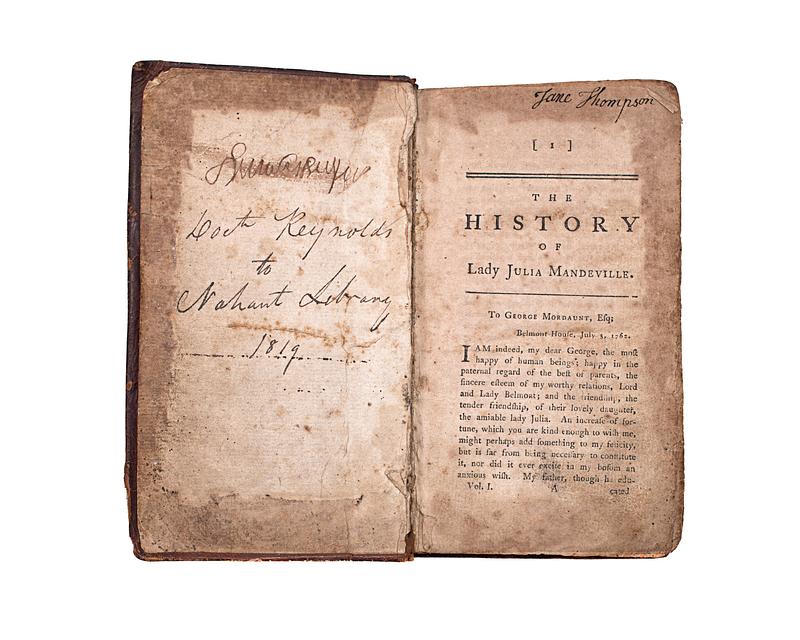 Doct Reynolds
to
Nahant Library
1819
Jane Thompson
[ 1 ]
THE
HISTORY
OF
Lady JULIA MANDEVILLE.
To GEORGE MORDAUNT, Eſq;
Belmont-Houſe, July 3, 1762.
I AM indeed, my dear George, the moſt
happy of human beings; happy in the
paternal regard of the beſt of parents, the
ſincere eſteem of my worthy relations, Lord
and Lady Belmont; and the friendſhip, the
tender friendſhip, of their lovely daughter,
the amiable lady Julia. An increaſe of for-
tune, which you are kind enough to wiſh me,
might perhaps add ſomething to my felicity,
but is far from being neceſſary to conſtitute
it, nor did it ever excite in my boſom an
anxious wiſh. My father, though he edu-
Vol. I. A cated